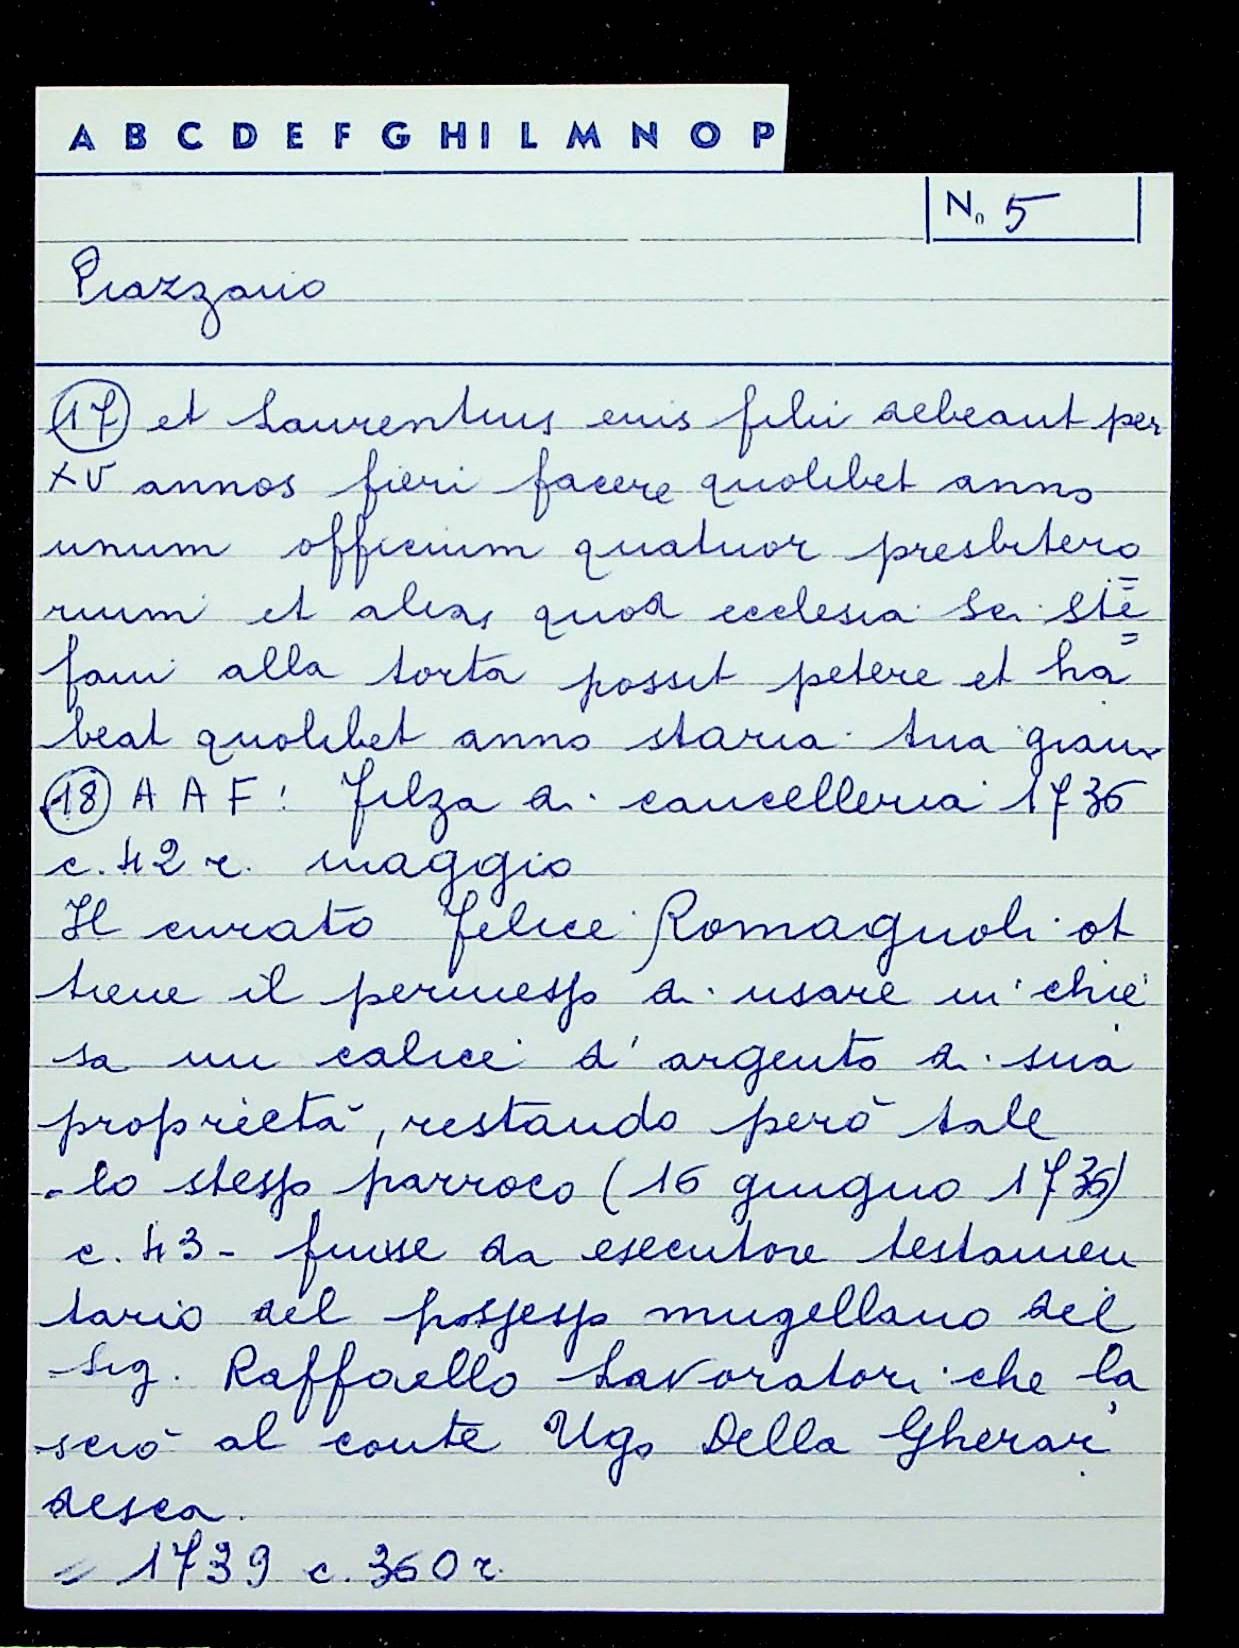 A B C D E F G H I L M N O P
N. 5
Piazzano
17 et Laurentius eius filii debeant per
XV annos fieri facere quolibet anno
unum officium quatuor presbitero
rum et alia, quod ecclesia Sci. Ste
fani alla torta possit petere et ha
beat quolibet anno staria tria grani
18 A A F: filza di cancelleria 1736
c. 42 r. maggio
Il curato Felice Romagnoli ot
tiene il permesso di usare in chie
sa un calice d'argento di sua
proprietà, restando però tale
- lo stesso parroco (16 giugno 1736)
c. 43 - funse da esecutore testamen
tario del possesso mugellano del
Sig. Raffaello Lavoratori che la
sciò al conte Ugo Della Gherar
desca.
= 1739 c. 360 r.